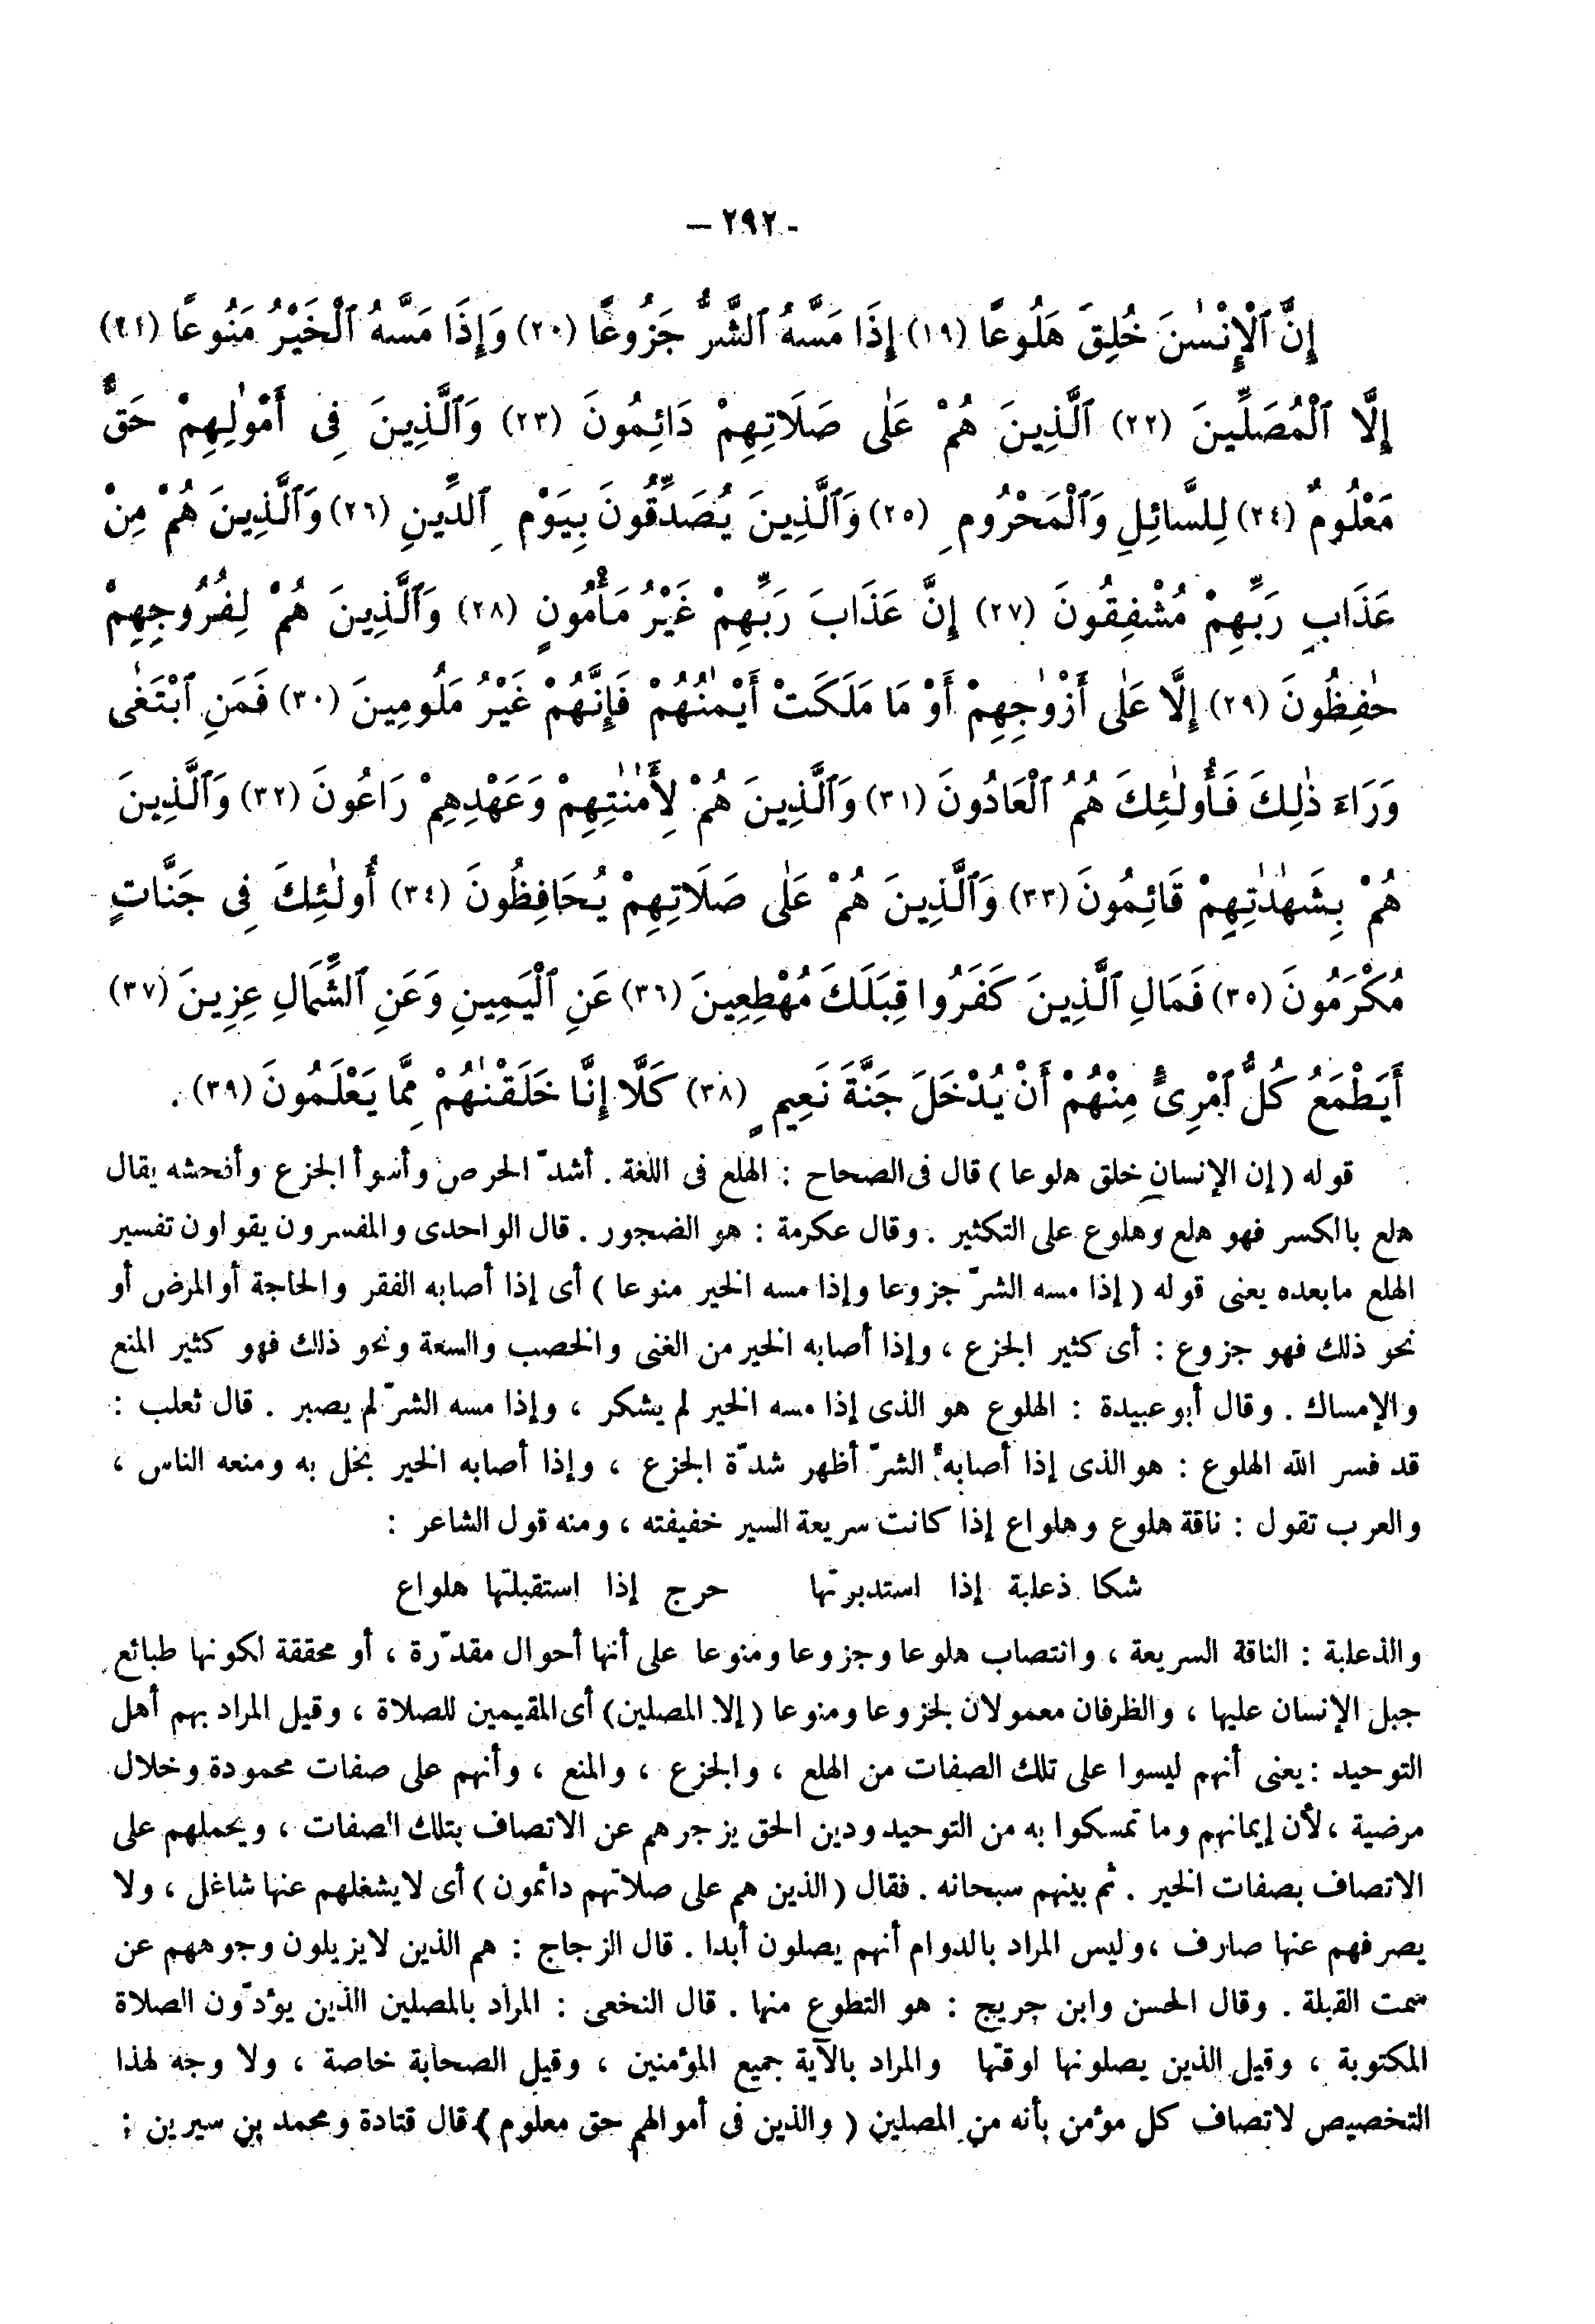 - ٢٩٢ -
إِنَّ ٱلْإِنْسٰنَ خُلِقَ هَلُوعًا (١٩) إِذَا مَسَّهُ ٱلشَّرُّ جَزُوعًا (٢٠) وَإِذَا مَسَّهُ ٱلْخَيْرُ مَنُوعًا (٢١)
إِلَّا ٱلْمُصَلِّينَ (٢٢) ٱلَّذِينَ هُمْ عَلٰى صَلَاتِهِمْ دَائِمُونَ (٢٣) وَٱلَّذِينَ فِى أَمْوٰلِهِمْ حَقٌّ
مَعْلُومٌ (٢٤) لِلسَّائِلِ وَٱلْمَحْرُومِ (٢٥) وَٱلَّذِينَ يُصَدِّقُونَ بِيَوْمِ ٱلدِّينِ (٢٦) وَٱلَّذِينَ هُمْ مِنْ
عَذَابِ رَبِّهِمْ مُشْفِقُونَ (٢٧) إِنَّ عَذَابَ رَبِّهِمْ غَيْرُ مَأْمُونٍ (٢٨) وَٱلَّذِينَ هُمْ لِفُرُوجِهِمْ
حٰفِظُونَ (٢٩) إِلَّا عَلٰى أَزْوٰجِهِمْ أَوْ مَا مَلَكَتْ أَيْمٰنُهُمْ فَإِنَّهُمْ غَيْرُ مَلُومِينَ (٣٠) فَمَنِ ٱبْتَغٰى
وَرَاءَ ذٰلِكَ فَأُولٰئِكَ هُمُ ٱلْعَادُونَ (٣١) وَٱلَّذِينَ هُمْ لِأَمٰنٰتِهِمْ وَعَهْدِهِمْ رَاعُونَ (٣٢) وَٱلَّذِينَ
هُمْ بِشَهٰدٰتِهِمْ قَائِمُونَ (٣٣) وَٱلَّذِينَ هُمْ عَلٰى صَلَاتِهِمْ يُحَافِظُونَ (٣٤) أُولٰئِكَ فِى جَنَّاتٍ
مُكْرَمُونَ (٣٥) فَمَالِ ٱلَّذِينَ كَفَرُوا قِبَلَكَ مُهْطِعِينَ (٣٦) عَنِ ٱلْيَمِينِ وَعَنِ ٱلشِّمَالِ عِزِينَ (٣٧)
أَيَطْمَعُ كُلُّ ٱمْرِئٍ مِنْهُمْ أَنْ يُدْخَلَ جَنَّةَ نَعِيمٍ (٣٨) كَلَّا إِنَّا خَلَقْنٰهُمْ مِمَّا يَعْلَمُونَ (٣٩) .
قوله (إن الإنسان خلق هلوعا) قال فى الصحاح : الهلع فى اللغة . أشدّ الحرص وأسوأ الجزع وأفحشه يقال
هلع بالكسر فهو هلع وهلوع على التكثير . وقال عكرمة : هو الضجور . قال الواحدى والمفسرون يقولون تفسير
الهلع مابعده يعنى قوله (إذا مسه الشرّ جزوعا وإذا مسه الخير منوعا) أى إذا أصابه الفقر والحاجة أو المرض أو
نحو ذلك فهو جزوع : أى كثير الجزع ، وإذا أصابه الخير من الغنى والخصب والسعة ونحو ذلك فهو كثير المنع
والإمساك . وقال أبو عبيدة : الهلوع هو الذى إذا مسه الخير لم يشكر ، وإذا مسه الشرّ لم يصبر . قال ثعلب :
قد فسر الله الهلوع : هو الذى إذا أصابه الشرّ أظهر شدّة الجزع ، وإذا أصابه الخير بخل به ومنعه الناس ،
والعرب تقول : ناقة هلوع وهلواع إذا كانت سريعة السير خفيفته ، ومنه قول الشاعر :
شكا ذعلبة إذا استدبرتها حرج إذا استقبلتها هلواع
والذعلبة : الناقة السريعة ، وانتصاب هلوعا وجزوعا ومنوعا على أنها أحوال مقدّرة ، أو محققة لكونها طبائع
جبل الإنسان عليها ، والظرفان معمولان لجزوعا ومنوعا (إلا المصلين) أى المقيمين للصلاة ، وقيل المراد بهم أهل
التوحيد : يعنى أنهم ليسوا على تلك الصفات من الهلع ، والجزع ، والمنع ، وأنهم على صفات محمودة وخلال
مرضية ، لأن إيمانهم وما تمسكوا به من التوحيد ودين الحق يزجرهم عن الاتصاف بتلك الصفات ، ويحملهم على
الاتصاف بصفات الخير . ثم بينهم سبحانه . فقال (الذين هم على صلاتهم دائمون) أى لايشغلهم عنها شاغل ، ولا
يصرفهم عنها صارف ، وليس المراد بالدوام أنهم يصلون أبدا . قال الزجاج : هم الذين لايزيلون وجوههم عن
سمت القبلة . وقال الحسن وابن جريج : هو التطوع منها . قال النخعى : المراد بالمصلين الذين يؤدّون الصلاة
المكتوبة ، وقيل الذين يصلونها لوقتها والمراد بالآية جميع المؤمنين ، وقيل الصحابة خاصة ، ولا وجه لهذا
التخصيص لاتصاف كل مؤمن بأنه من المصلين (والذين فى أموالهم حق معلوم) قال قتادة ومحمد بن سيرين :